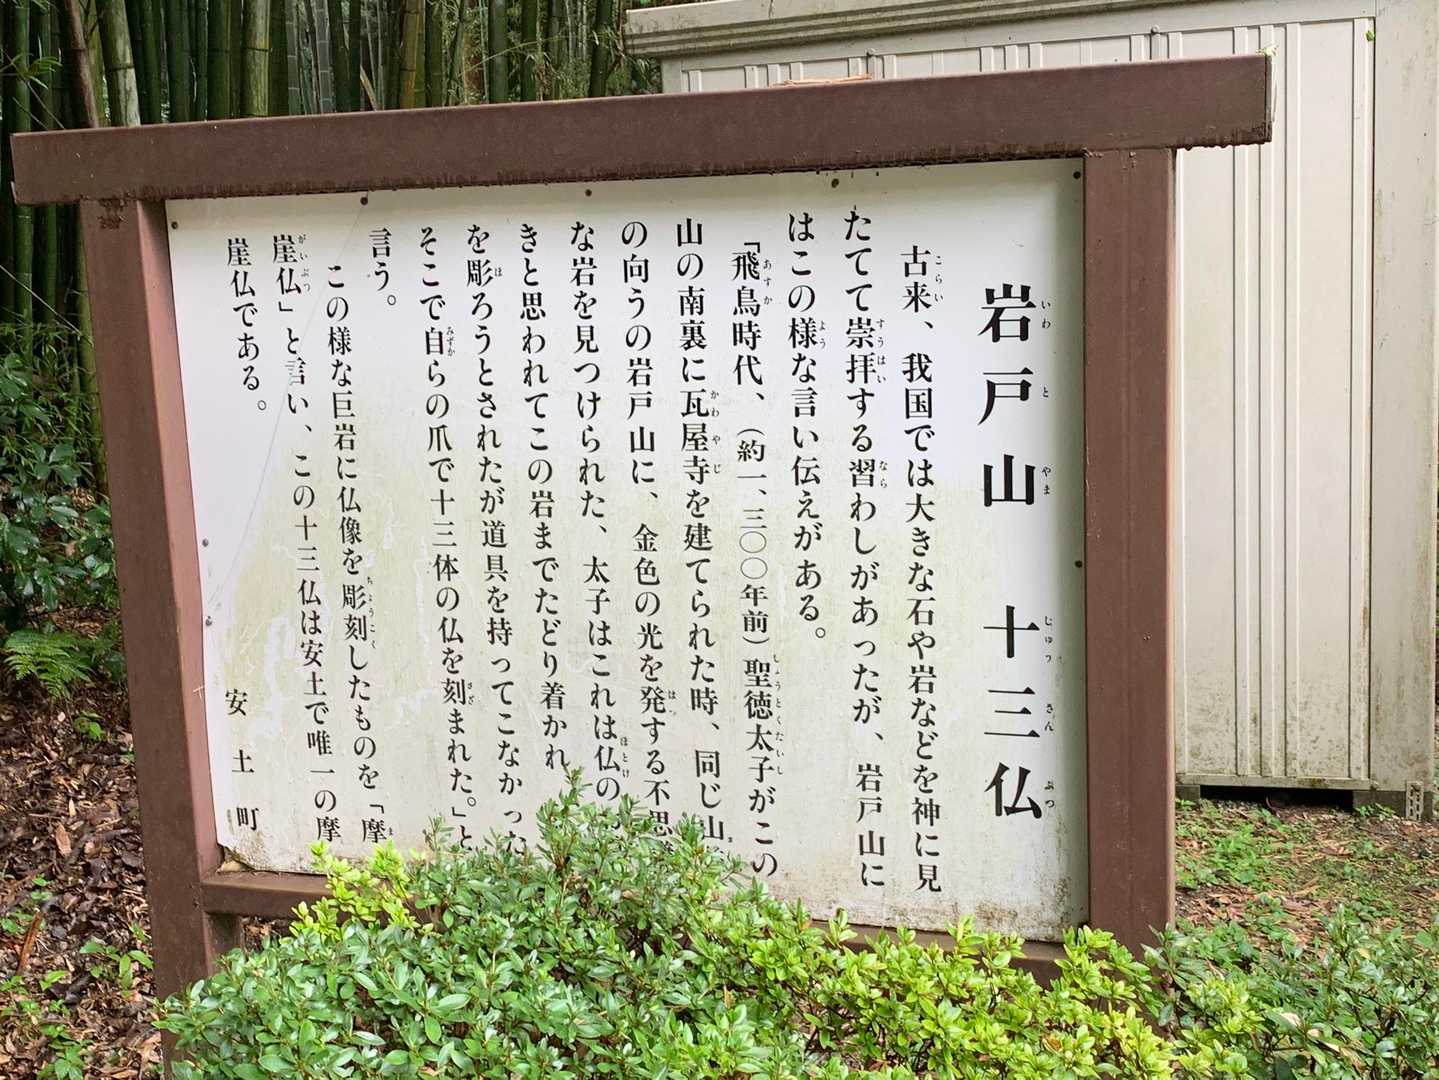 岩戸山　十三仏
古来、我国では大きな石や岩などを神に見
たてて崇拝する習わしがあったが、岩戸山に
はこの様な言い伝えがある。
「飛鳥時代、（約一、三〇〇年前）聖徳太子がこの
山の南裏に瓦屋寺を建てられた時、同じ山
の向うの岩戸山に、金色の光を発する不思
な岩を見つけられた、太子はこれは仏の
きと思われてこの岩までたどり着かれ
を彫ろうとされたが道具を持ってこなかった
そこで自らの爪で十三体の仏を刻まれた。」と
言う。
この様な巨岩に仏像を彫刻したものを「摩
崖仏」と言い、この十三仏は安土で唯一の摩
崖仏である。
安土町